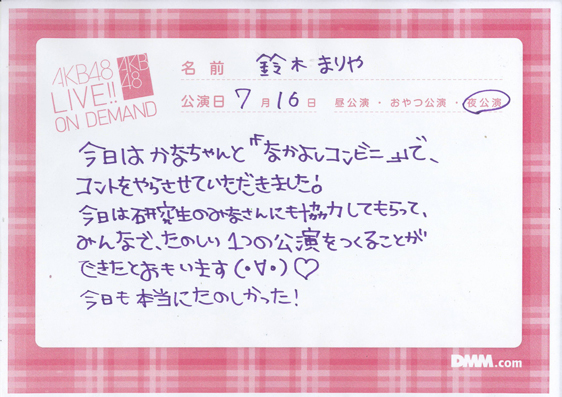 AKB48
LIVE!!
ON DEMAND
AKB
48
名前 鈴木まりや
公演日 7月16日 昼公演・おやつ公演・夜公演
今日はかなちゃんと『なかよしコンビニ』で、
コントをやらさせていただきました!
今日は研究生のみなさんにも協力してもらって、
みんなで、たのしい1つの公演をつくることが
できたとおもいます(・∀・)♡
今日も本当にたのしかった!
DMM.com